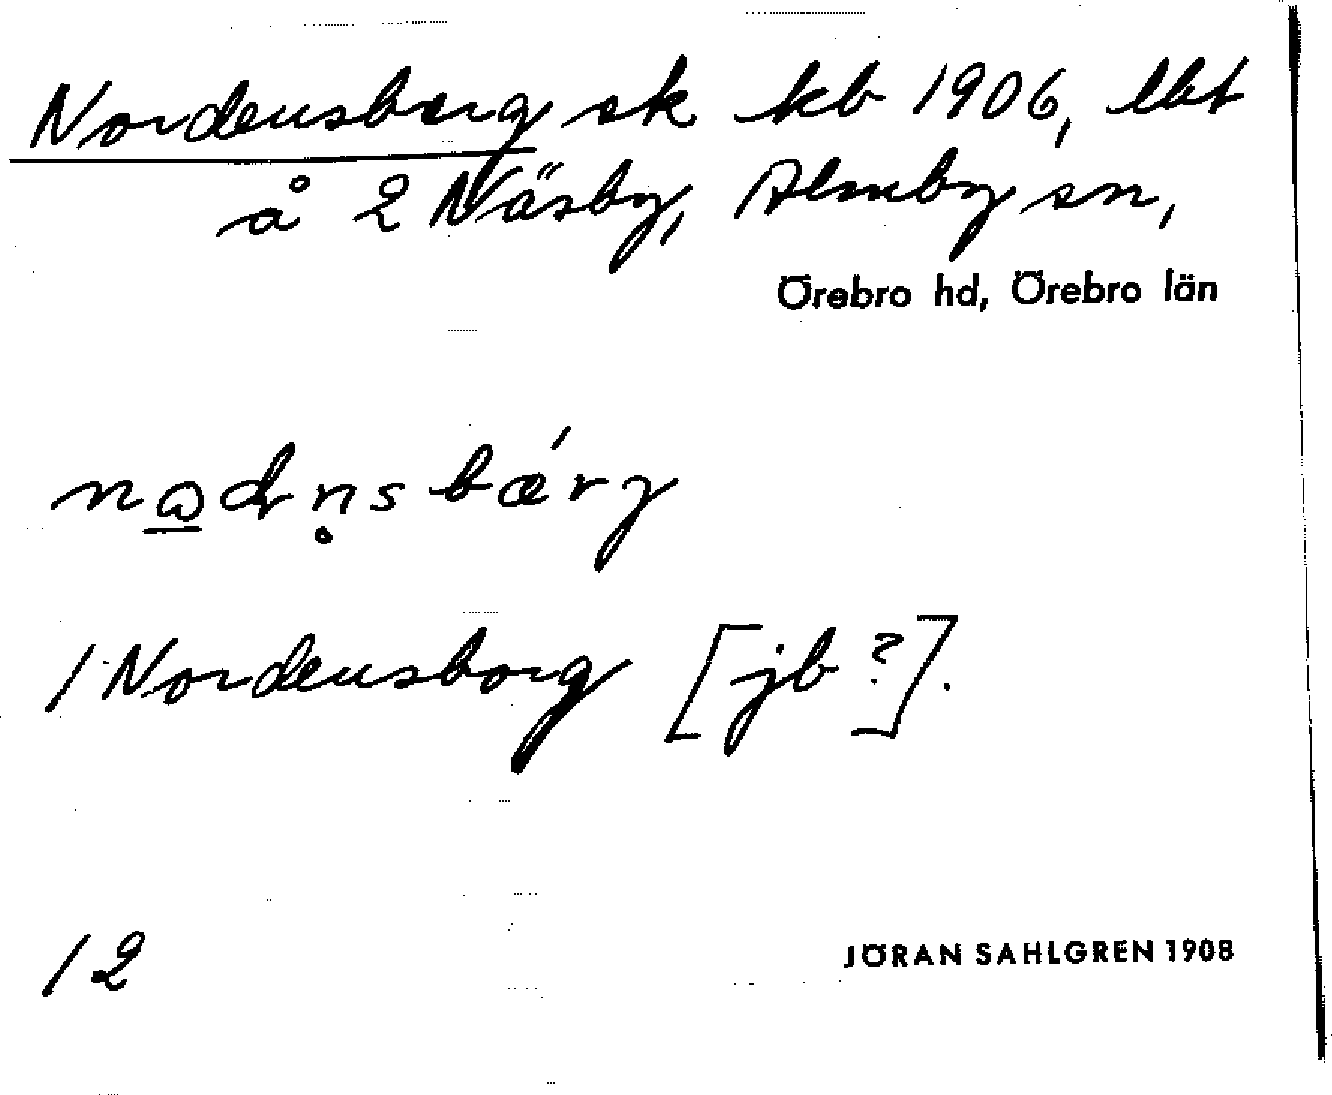 Nordensberg sk kb 1906, lht
å 2 Näsby, Almby sn,
Örebro hd, Örebro län
/Nordensborg [jb?].
12
JÖRAN SAHLGREN 1908